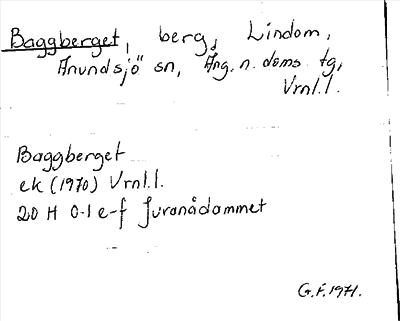 Baggberget, berg, Lindom,
Anundsjö sn, Ång. n. doms. tg,
Vrnl.l.
Baggberget
ek (1970) Vrnl.l.
20 H 0-1 e-f Juranådammet
G.F. 1971.